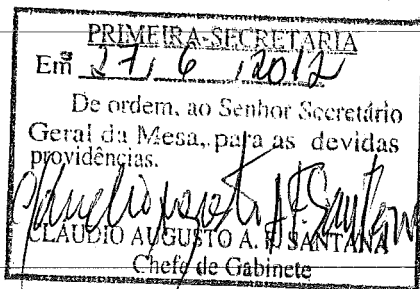 PRIMEIRA-SECRETARIA
Em 27, 6, 2012
De ordem, ao Senhor Secretário
Geral da Mesa, para as devidas
providências.
CLAUDIO AUGUSTO A. F. SANTANA
Chefe de Gabinete